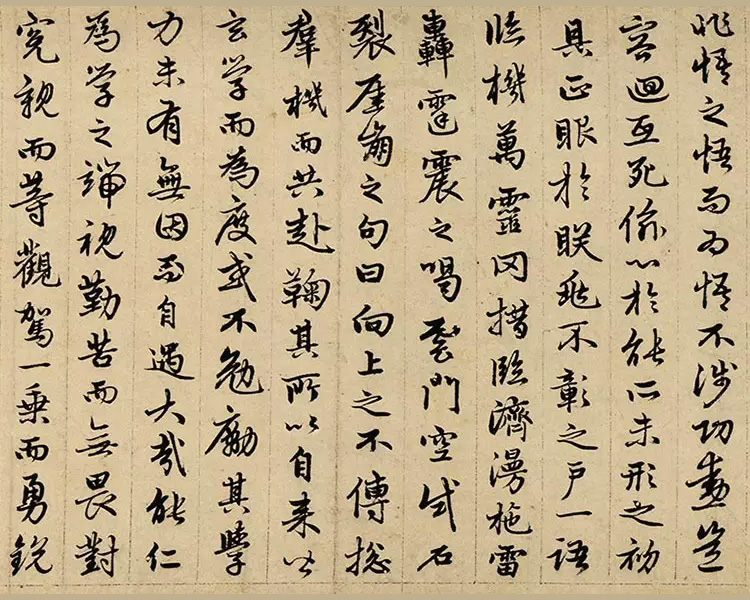 非悟之悟而为悟不涉功勳豈
容迴互死係心於能所未形之初
具正眼於朕兆不彰之戶一語
臨機萬靈罔措臨濟漫施雷
轟霆震之喝雲門空試石
裂崖崩之句曰向上之不傳揔
羣機而共赴鞠其所以自来必
玄学而為度或不勉勵其學
力未有無因而自遇大哉能仁
為学之端視勤苦而無畏對
冤親而等觀駕一乗而勇銳